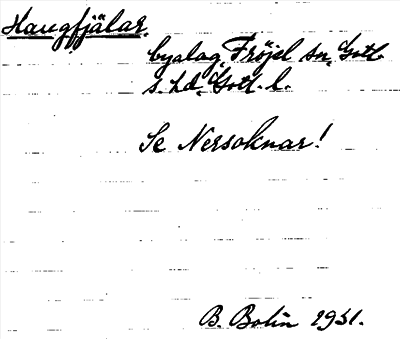 Haugfjälar.
byalag, Fröjel sn, Gotl.
s. hd, Gotl. l.
Se Nersoknar!
B. Bolin 1931.